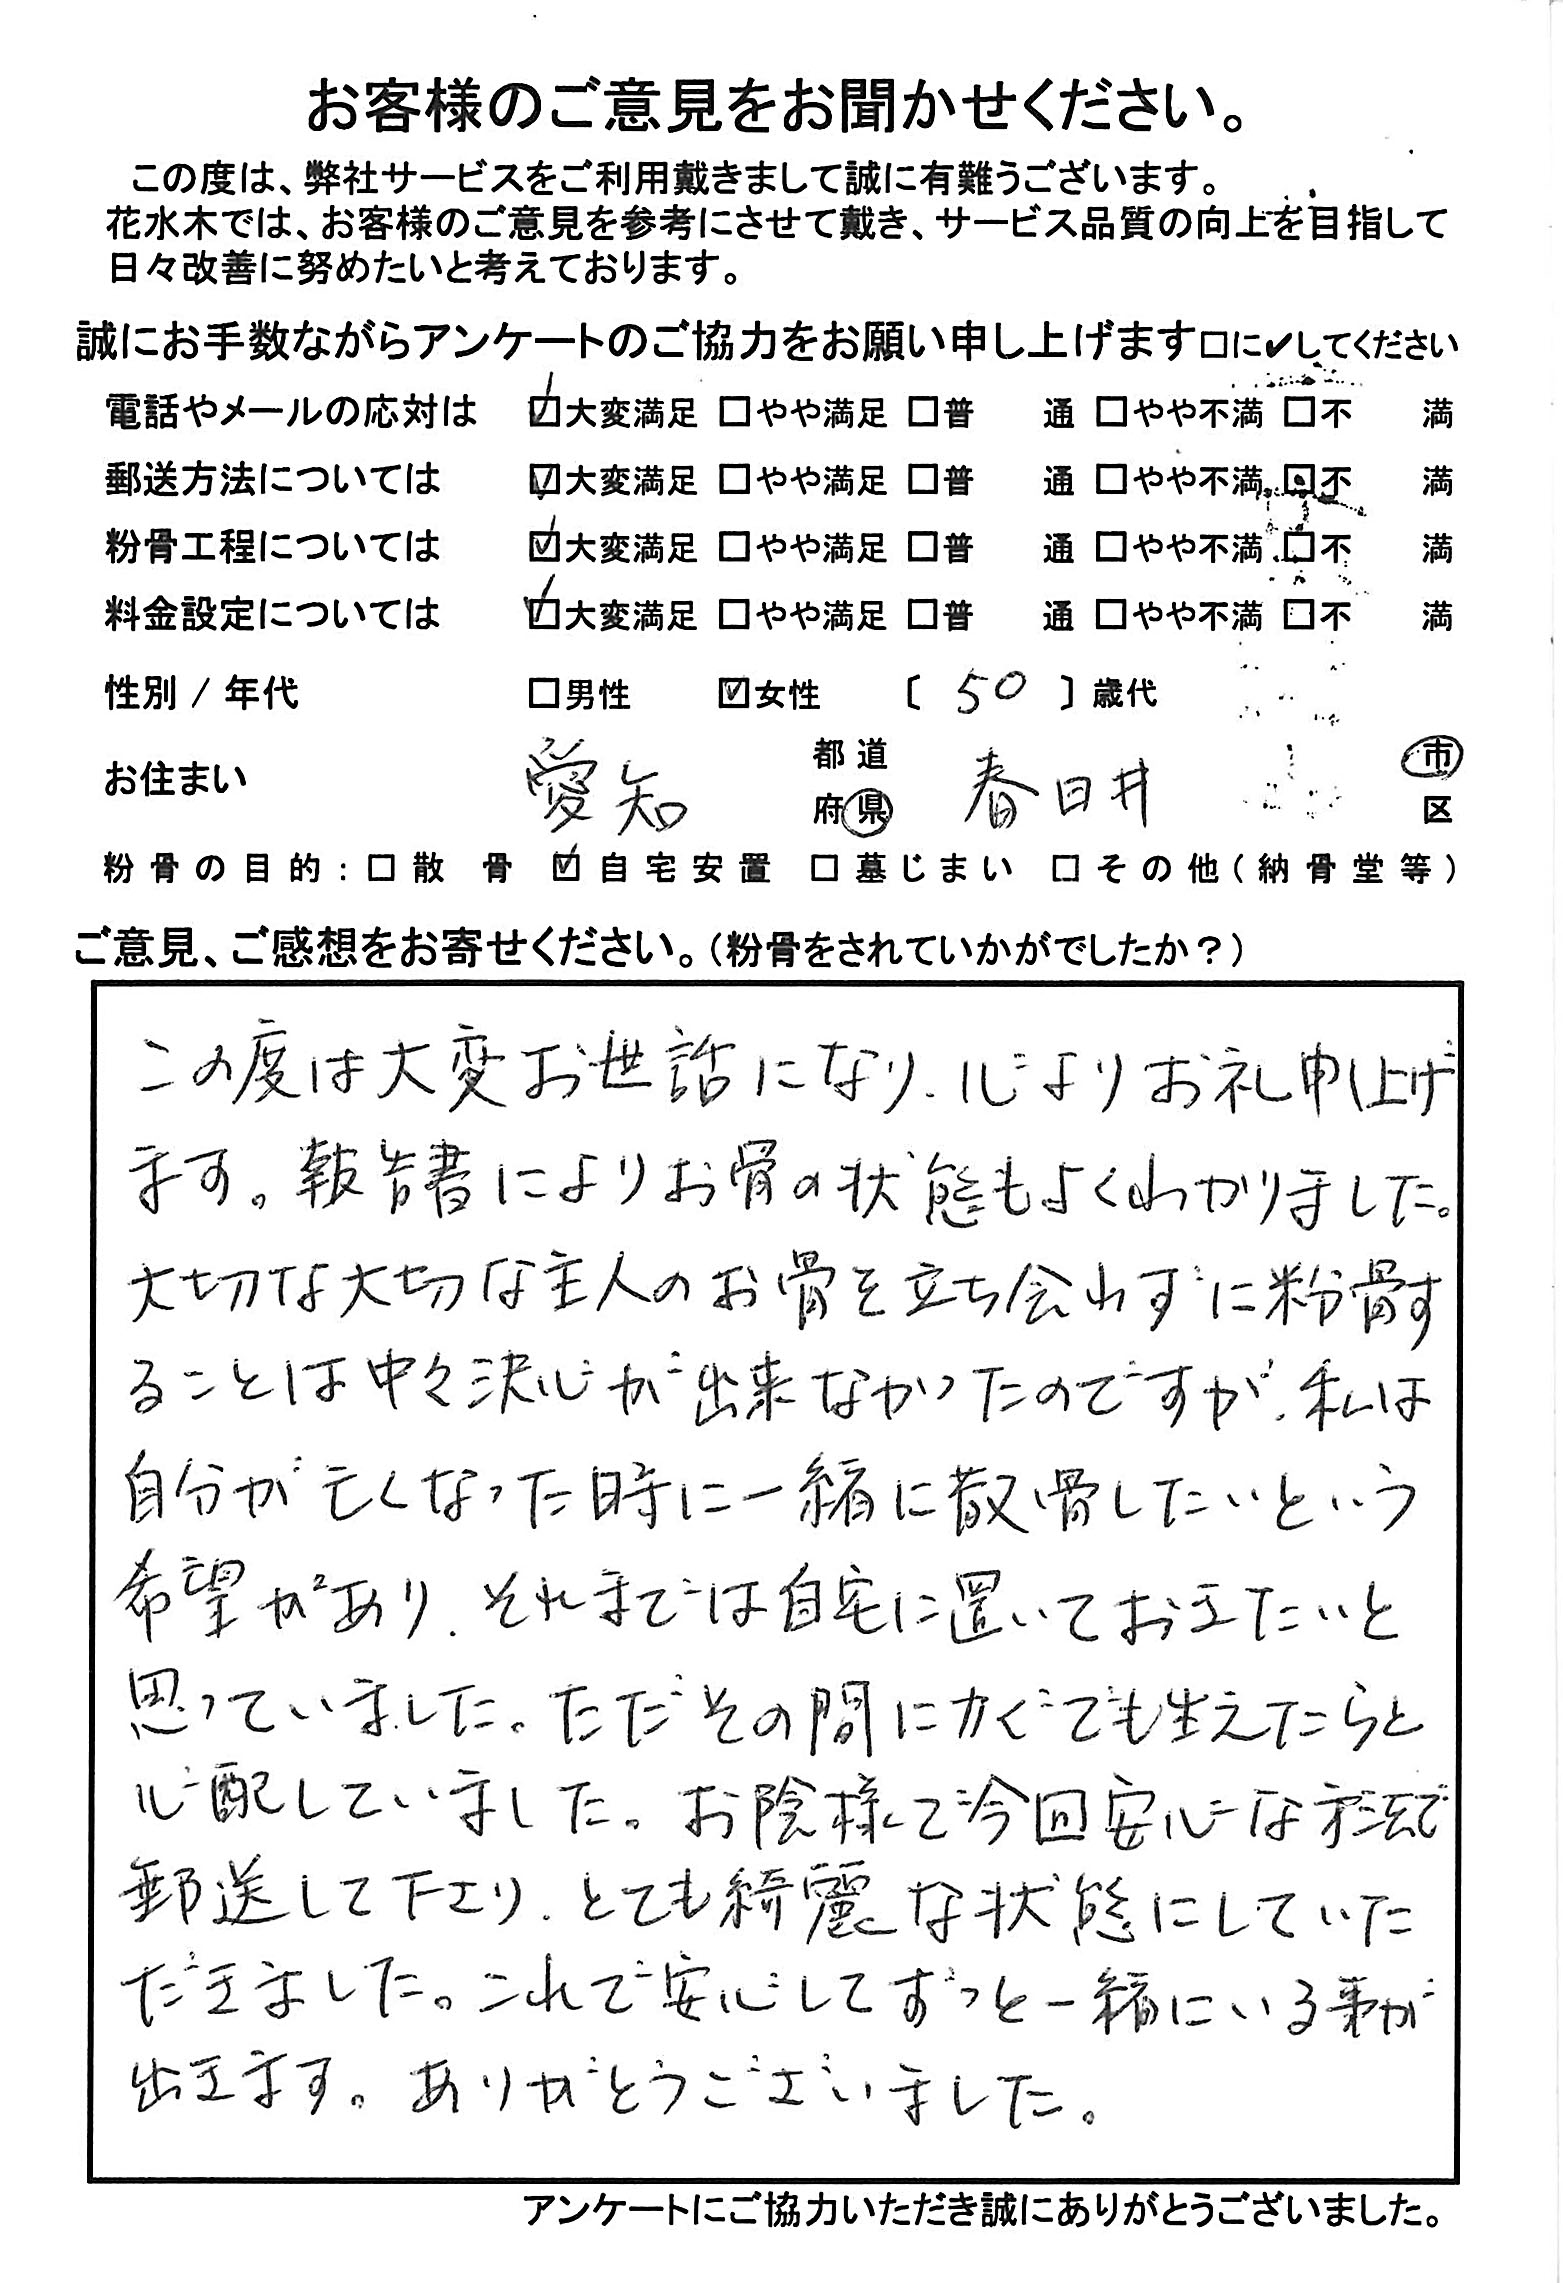 お客様のご意見をお聞かせください。
この度は、弊社サービスをご利用戴きまして誠に有難うございます。
花水木では、お客様のご意見を参考にさせて戴き、サービス品質の向上を目指して
日々改善に努めたいと考えております。
誠にお手数ながらアンケートのご協力をお願い申し上げます□に✔してください
電話やメールの応対は ☑大変満足 □やや満足 □普 通 □やや不満 □不 満
郵送方法については ☑大変満足 □やや満足 □普 通 □やや不満 □不 満
粉骨工程については ☑大変満足 □やや満足 □普 通 □やや不満 □不 満
料金設定については ☑大変満足 □やや満足 □普 通 □やや不満 □不 満
性別 / 年代 □男性 ☑女性 〔 50 〕歳代
お住まい 愛知 都道府県 春日井 市区
粉骨の目的:□散 骨 ☑自宅安置 □墓じまい □その他(納骨堂等)
ご意見、ご感想をお寄せください。(粉骨をされていかがでしたか?)
この度は大変お世話になり、心よりお礼申し上げ
ます。報告書によりお骨の状態もよくわかりました。
大切な大切な主人のお骨を立ち会わずに粉骨す
ることは中々決心が出来なかったのですが、私は
自分が亡くなった時に一緒に散骨したいという
希望があり、それまでは自宅に置いておきたいと
思っていました。ただその間にカビでも生えたらと
心配していました。お陰様で今回安心な方法で
郵送して下さり、とても綺麗な状態にしていた
だきました。これで安心してずっと一緒にいる事が
出きます。ありがとうございました。
アンケートにご協力いただき誠にありがとうございました。